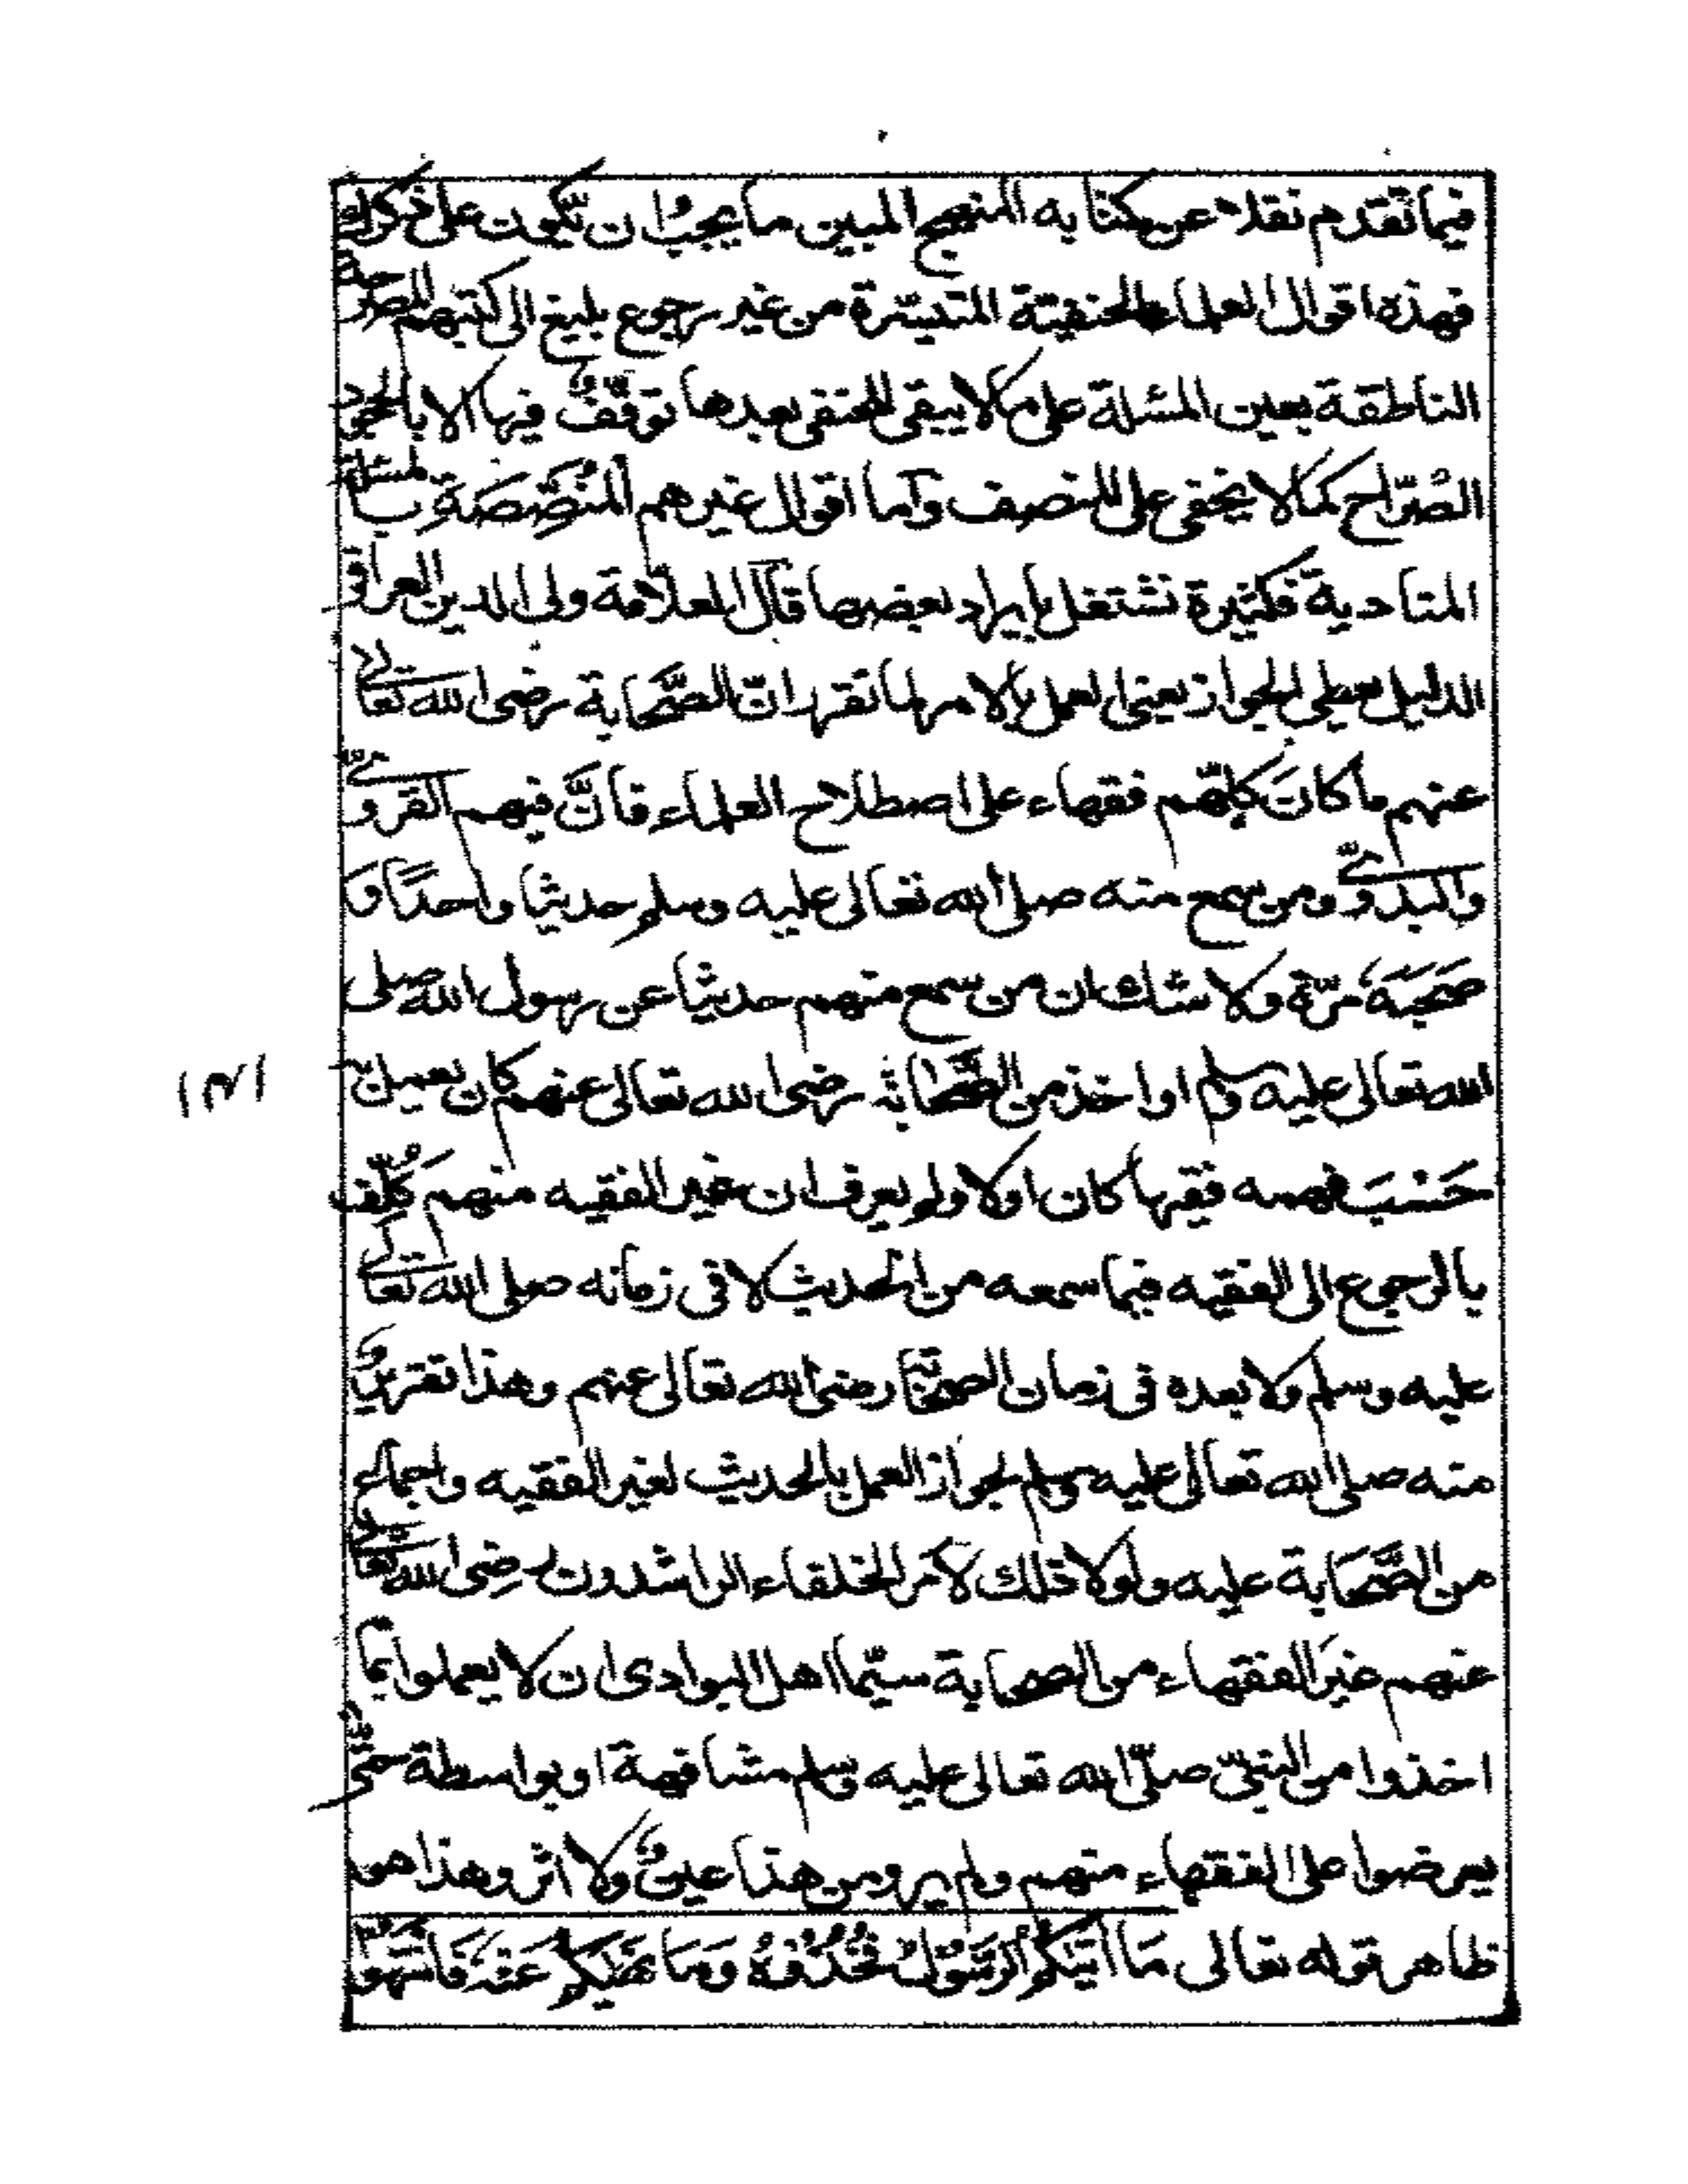 فيما تقدم نقلا عن كتابه المنهج المبين ما يجب ان تكون على ذكر لك
فهذه اقوال العلماء الحنفيّة المتيسّرة من غير رجوع بليغ الى كتبهم المصرحة
الناطقة بعين المسئلة على ما لا يبقى للحنفى بعدها توقّفٌ فيها الا بالجحود
الصّراح كما لا يخفى على المنصف وآما اقوال غيرهم المُنصِّصَةِ بالمسئلة
المتادية فكثيرة نشتغل بايراد بعضها قال العلّامة ولى الدين العراقى
الدليل يعطى الجواز يعنى العمل بالامر لما تقرر انّ الصّحابة رضى الله تعالى
عنهم ما كانَ كلّهم فقهاء على اصطلاح العلماء فانَّ فيهم القروىّ
والبدوىّ ومن سمع منه صلى الله تعالى عليه وسلم حديثا واحدًا وَ
صَحِبَهُ مرّة ولا شك ان من سمع منهم حديثا عن رسول الله صلى
الله تعالى عليه وسلم او اخذ من الصّحابة رضى الله تعالى عنهم كان يعمل به
حَسْبَ فهمه فقيها كان او لا ولم يعرف ان غير الفقيه منهم كُلِّف
بالرجوع الى الفقيه فيما سمعه من الحديث لا فى زمانه صلى الله تعالى
عليه وسلم ولا بعده فى زمان الصحابة رضى الله تعالى عنهم وهذا تقريرٌ
منه صلى الله تعالى عليه وسلم لجواز العمل بالحديث لغير الفقيه واجماع
من الصّحابة عليه ولولا ذلك لامَر الخلفاء الراشدون رضِى الله تعالى
عنهم غيرَ الفقهاء من الصحابة سيّما اهل البوادى ان لا يعملوا بما
اخذوا من النبىّ صلّى الله تعالى عليه وسلم مشافهة او بواسطة حتّى
يعرضوا على الفقهاء منهم ولم يرو من هذا عينٌ ولا اثر وهذا هو
ظاهر قوله تعالى مَا اٰتٰىكُمُ الرَّسُوْلُ فَخُذُوْهُ وَمَا نَهٰىكُمْ عَنْهُ فَانْتَهُوْا